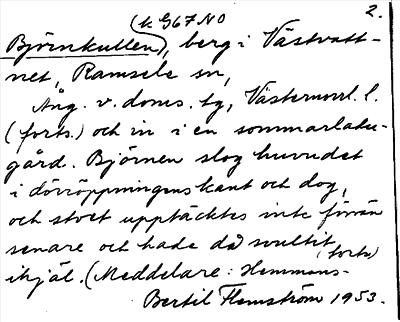 (k. G67 NO 2.
Björnkullen), berg i Västvatt-
net, Ramsele sn,
Ång. v. doms. tg, Västernorrl. l.
(forts.) och in i en sommarladu-
gård. Björnen slog huvudet
i dörröppningens kant och dog,
och stoet upptäcktes inte förrän
senare och hade då svultit
ihjäl. (Meddelare: Hemmans- (forts)
Bertil Flemström 1953.